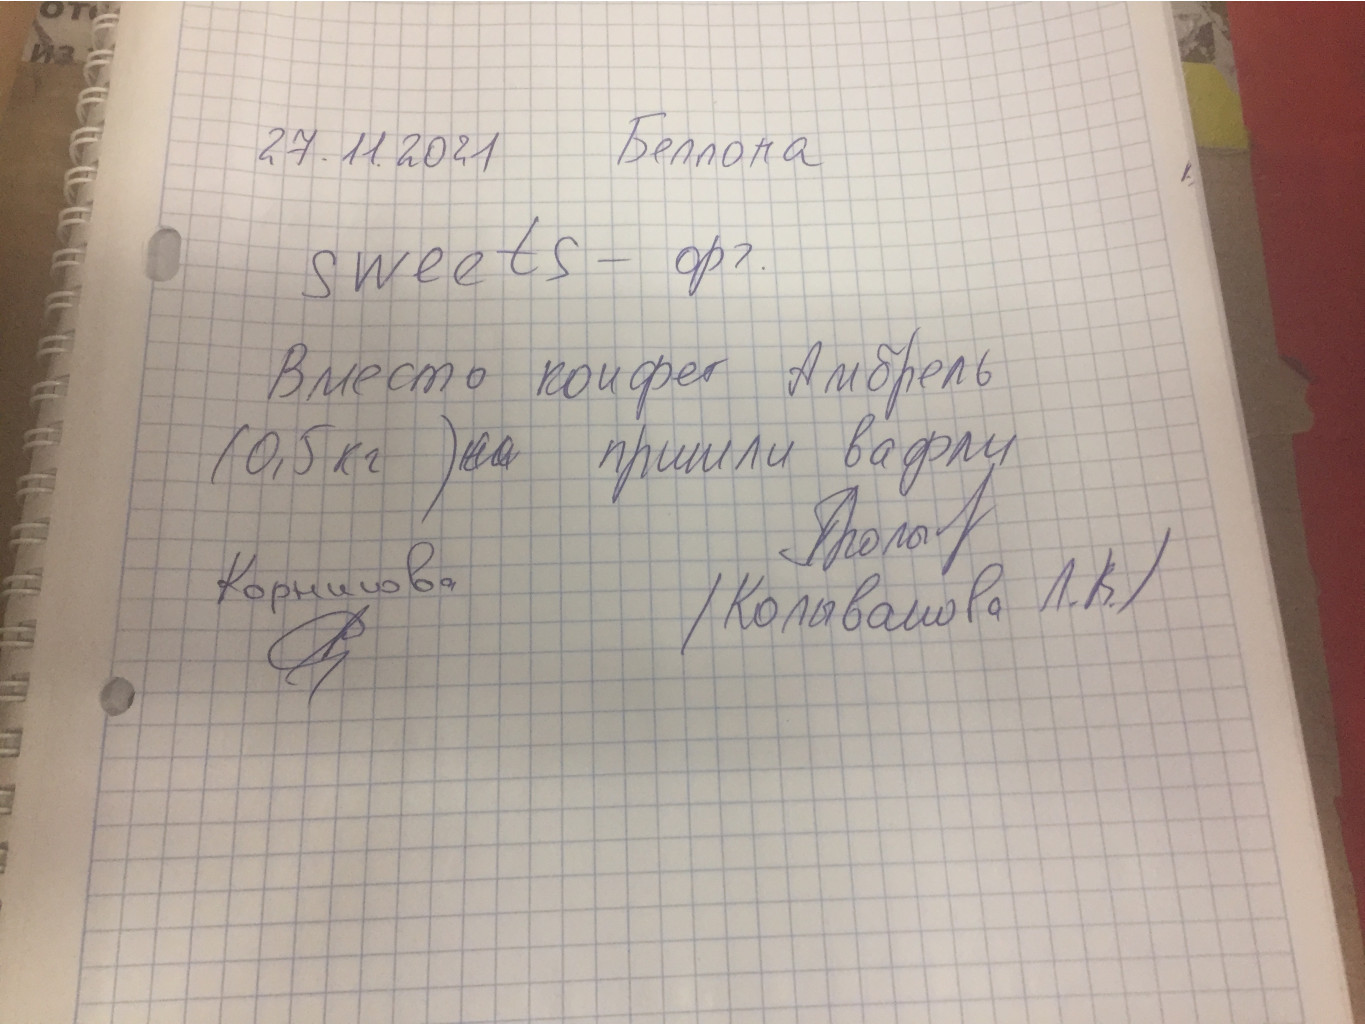 отс
из
27.11.2021 Беллона
sweets - орг.
Вместо конфет Амбрель
(0,5 кг) пришли вафли
Корнилова
/Колыванова Л.В./